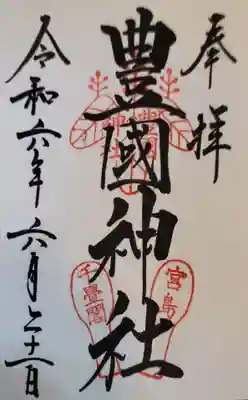 奉拝
豊國神社
宮島
千畳閣
令和六年六月二十一日